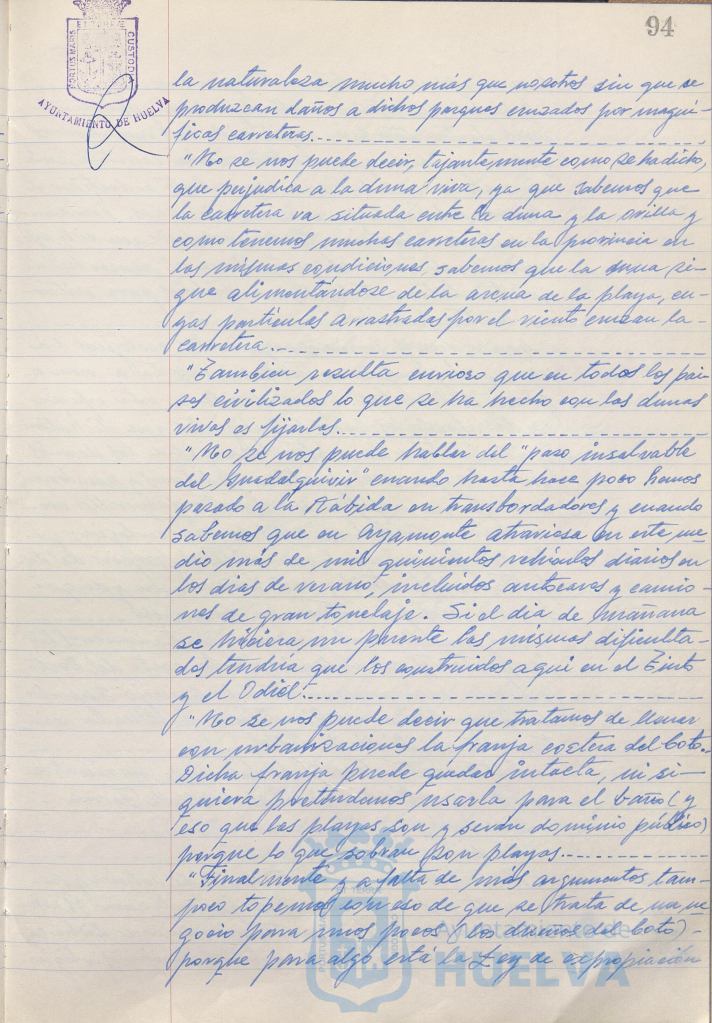 94
PORTUS MARIS ET TERRAE CUSTODIA
AYUNTAMIENTO DE HUELVA
la naturaleza mucho más que nosotros sin que se
produzcan daños a dichos parques cruzados por magní-
ficas carreteras.
"No se nos puede decir, tajantemente como se ha dicho,
que perjudica a la duna viva, ya que sabemos que
la carretera va situada entre la duna y la orilla y
como tenemos muchas carreteras en la provincia en
las mismas condiciones, sabemos que la duna si-
gue alimentándose de la arena de la playa, cu-
yas partículas arrastradas por el viento cruzan la
carretera.
"Tambien resulta curioso que en todos los pai-
ses civilizados lo que se ha hecho con las dunas
vivas es fijarlas.
"No se nos puede hablar del "paso insalvable
del Guadalquivir" cuando hasta hace poco hemos
pasado a la Rábida en transbordadores y cuando
sabemos que en Ayamonte atraviesa en este me-
dio más de mil quinientos vehículos diarios en
los dias de verano, incluidos autocares y camio-
nes de gran tonelaje. Si el dia de mañana
se hiciera un puente las mismas dificulta-
des tendria que los construidos aqui en el Tinto
y el Odiel.
"No se nos puede decir que tratamos de llenar
con urbanizaciones la franja costera del Coto.
Dicha franja puede quedar intacta, ni si-
quiera pretendemos usarla para el baño (y
eso que las playas son y seran dominio público)
porque lo que sobran son playas.
"Finalmente y a falta de más argumentos tam-
poco topemos con eso de que se trata de un ne-
gocio para unos pocos (y los dueños del Coto)-
porque para algo está la Ley de expropiación
Ayuntamiento de
HUELVA